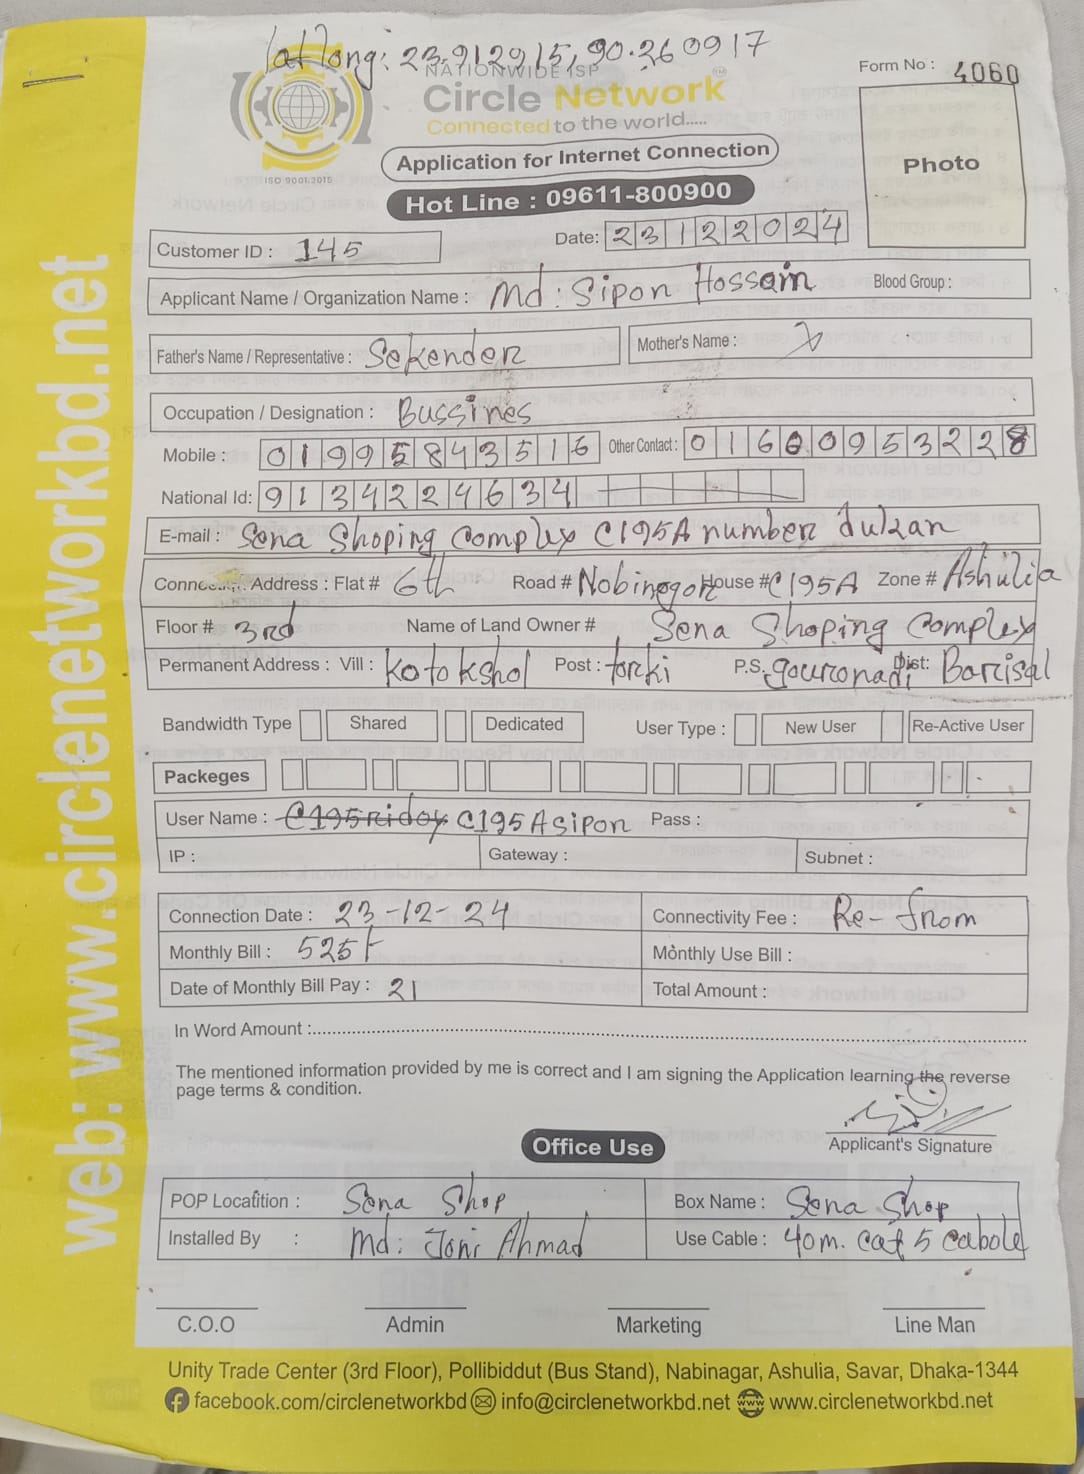 lat long: 23.912915, 90.260917
NATIONWIDE ISP
Circle Network
Connected to the world.....
ISO 9001:2015
Form No : 4060
Photo
Application for Internet Connection
Hot Line : 09611-800900
Customer ID : 145
Date: 23122024
Applicant Name / Organization Name : Md: Sipon Hossain
Blood Group :
Father's Name / Representative : Sekender
Mother's Name :
Occupation / Designation : Bussines
Mobile : 01995843516 Other Contact : 01600953228
National Id: 9134224634
E-mail : Sena Shoping Complex C195A number dukan
Address : Flat # 6th Road # Nobinogor House # C195A Zone # Ashulia
Floor # 3rd Name of Land Owner # Sena Shoping Complex
Permanent Address : Vill : Kotokshol Post : torki P.S. gouronadi Dist: Barisal
Bandwidth Type Shared Dedicated User Type : New User Re-Active User
Packeges
User Name : C195Ridoy C195Asipon Pass :
IP : Gateway : Subnet :
Connection Date : 23-12-24 Connectivity Fee : Re-from
Monthly Bill : 525t Monthly Use Bill :
Date of Monthly Bill Pay : 21 Total Amount :
In Word Amount :
The mentioned information provided by me is correct and I am signing the Application learning the reverse
page terms & condition.
Applicant's Signature
Office Use
POP Locatition : Sena Shop Box Name : Sena Shop
Installed By : Md: Joni Ahmad Use Cable : 40m. cat 5 cabole
C.O.O Admin Marketing Line Man
Unity Trade Center (3rd Floor), Pollibiddut (Bus Stand), Nabinagar, Ashulia, Savar, Dhaka-1344
facebook.com/circlenetworkbd info@circlenetworkbd.net www.circlenetworkbd.net
web: www.circlenetworkbd.net